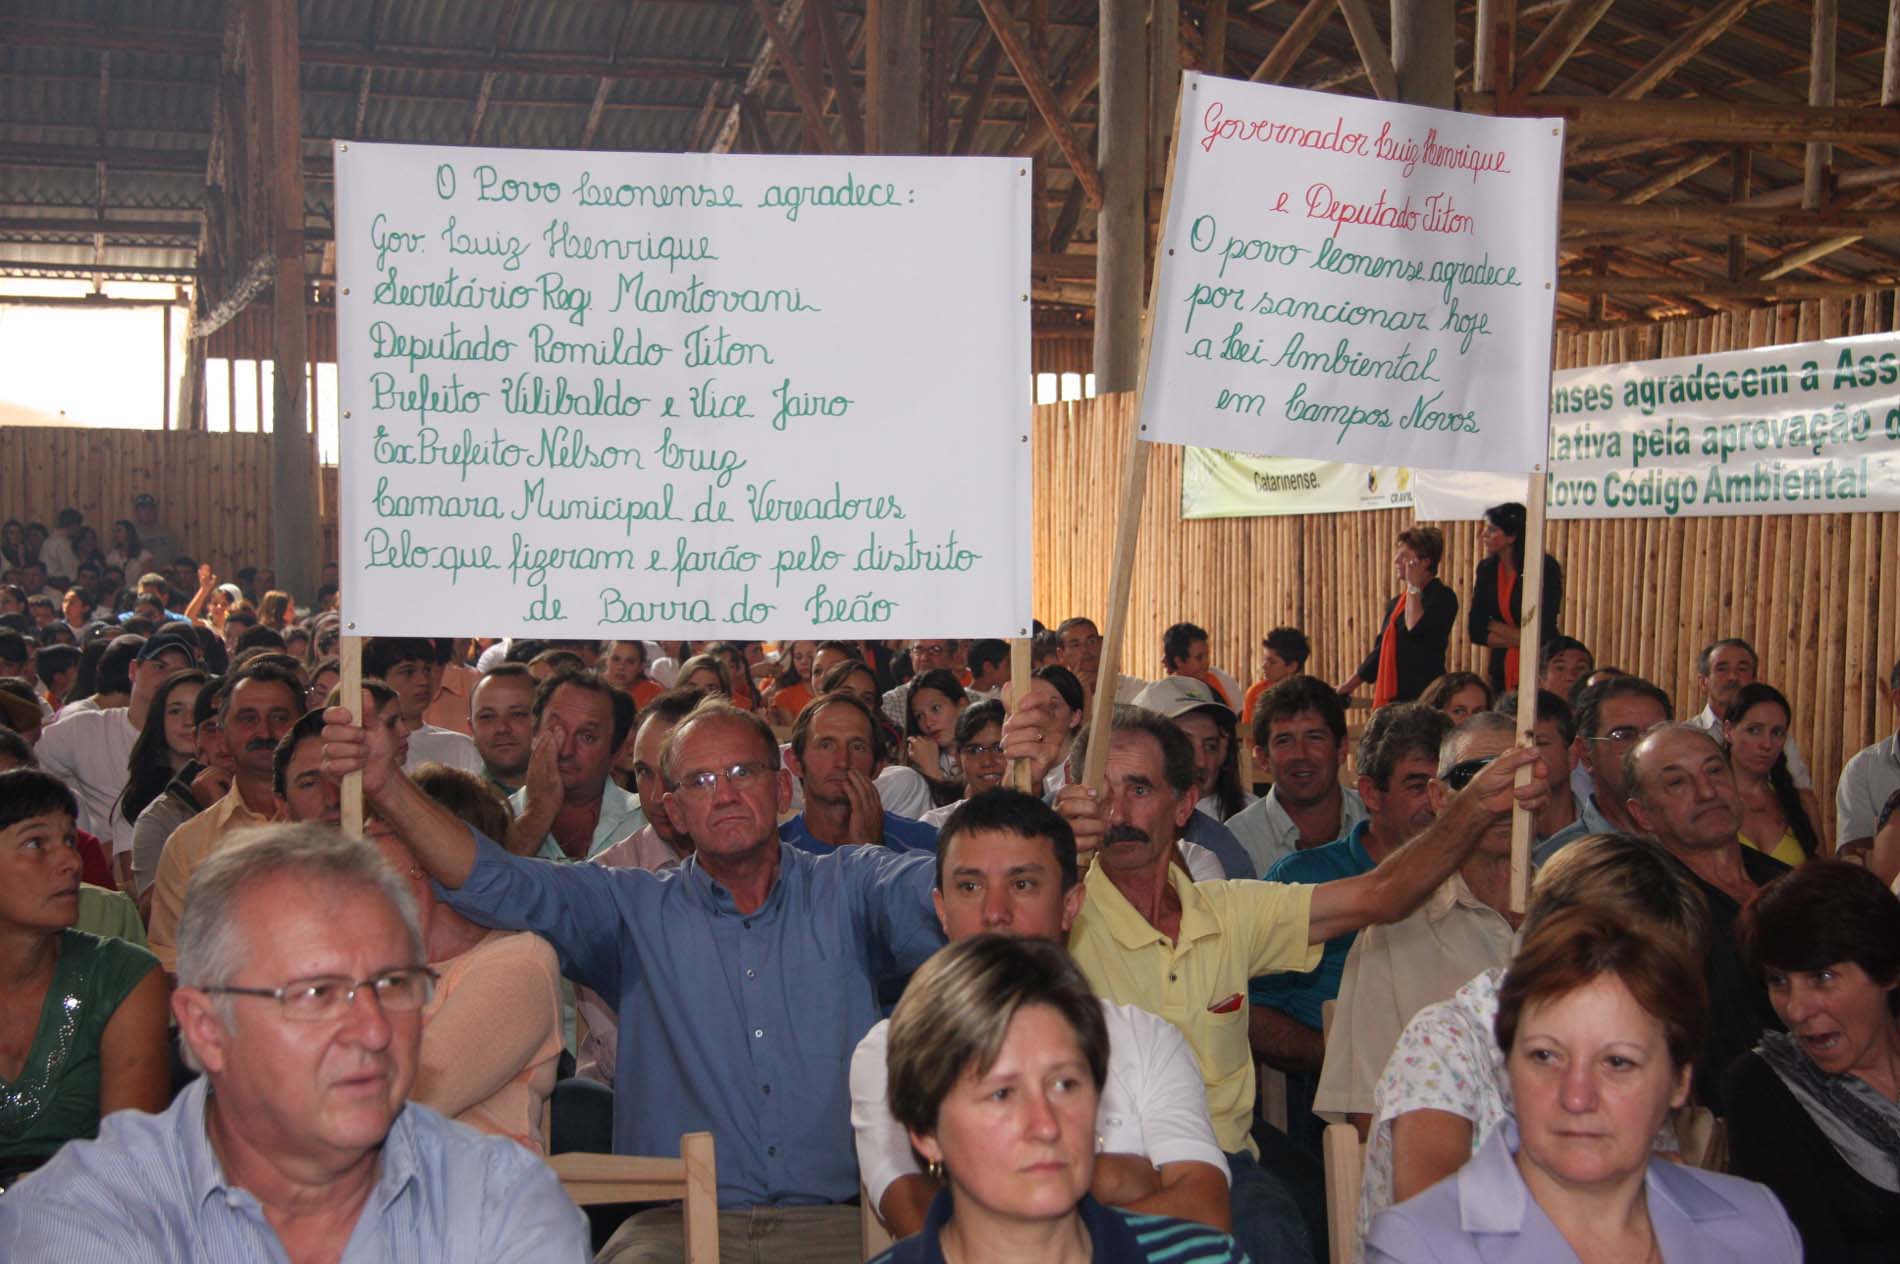 O Povo Leonense agradece:
Gov. Luiz Henrique
Secretário Reg. Mantovani
Deputado Romildo Titon
Prefeito Vilibaldo e Vice Jairo
Ex Prefeito Nelson Cruz
Camara Municipal de Vereadores
Pelo que fizeram e farão pelo distrito
de Barra do Leão
Governador Luiz Henrique
e Deputado Titon
O povo leonense agradece
por sancionar hoje
a Lei Ambiental
em Campos Novos
enses agradecem a Asse
lativa pela aprovação d
Novo Código Ambiental
Catarinense.
CRAVIL